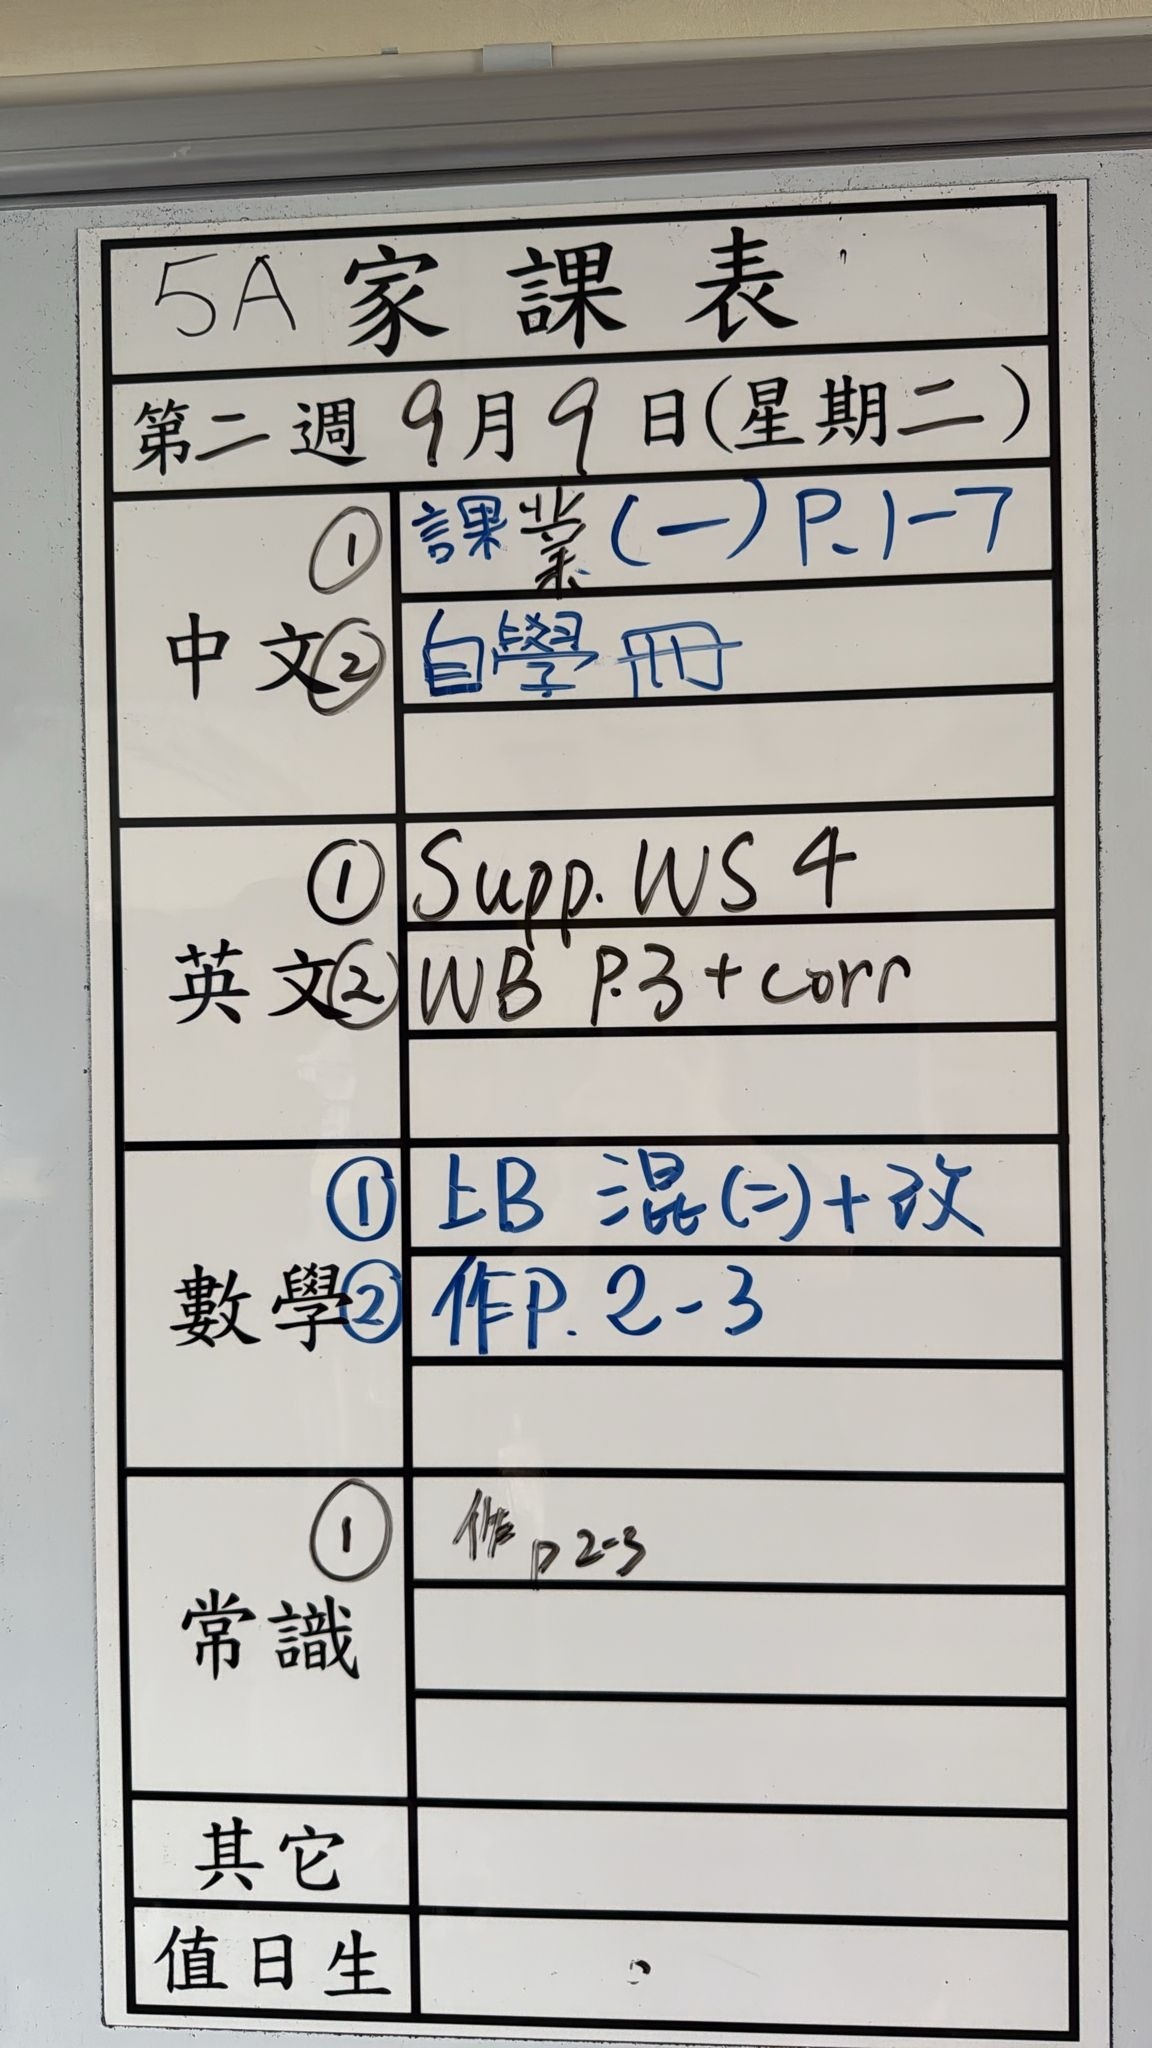 5A 家課表
第二週 9月9日(星期二)
中文
① 課業(一) P.1-7
② 自學冊
英文
① Supp. WS 4
② WB P.3 + corr
數學
① 上B 混(二)+改
② 作P. 2-3
常識
① 作 p 2-3
其它
值日生